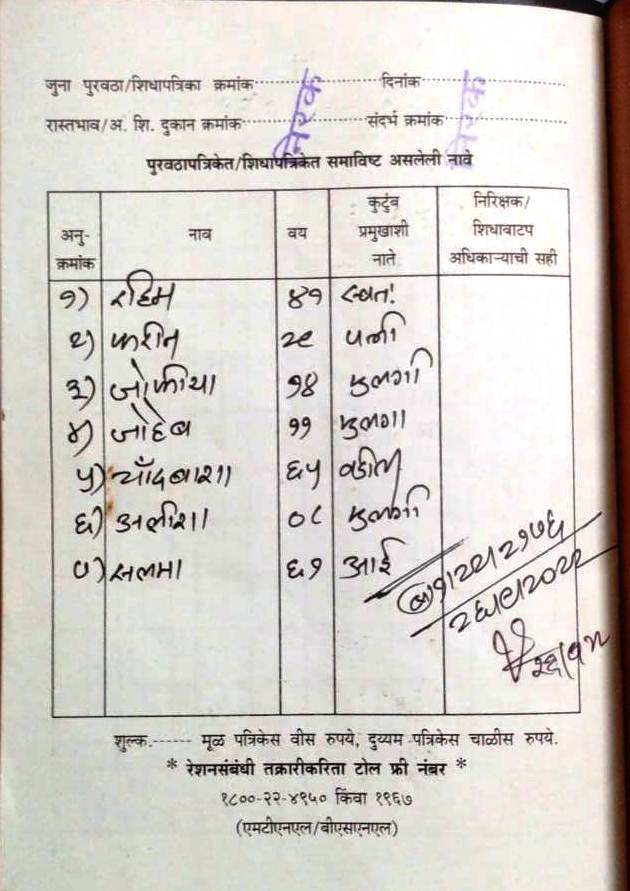 जुना पुरवठा/शिधापत्रिका क्रमांक ............ दिनांक ............
रास्तभाव/अ. शि. दुकान क्रमांक ............ संदर्भ क्रमांक ............
निरंक निरंक
पुरवठापत्रिकेत/शिधापत्रिकेत समाविष्ट असलेली नावे
अनु-क्रमांक नाव वय कुटुंब प्रमुखाशी नाते निरिक्षक/शिधावाटप अधिकाऱ्याची सही
१) रहिम ४१ स्वतः
२) फरीन २९ पत्नी
३) जोफीया १४ मुलगी
४) जोहेब ११ मुलगा
५) चाँदबाशा ६५ वडील
६) अलीशा ०८ मुलगी
७) सलमा ६१ आई
शुल्क.------ मूळ पत्रिकेस वीस रुपये, दुय्यम पत्रिकेस चाळीस रुपये.
* रेशनसंबंधी तक्रारीकरिता टोल फ्री नंबर *
१८००-२२-४९५० किंवा १९६७
(एमटीएनएल/बीएसएनएल)